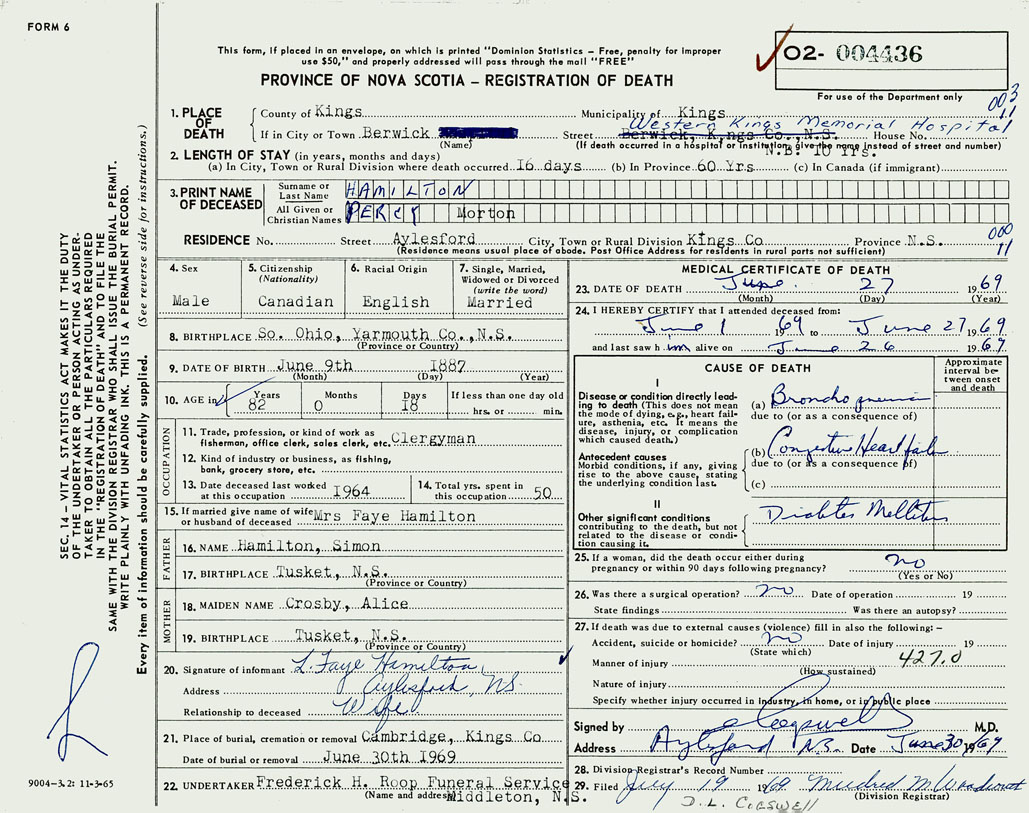 FORM 6
This form, if placed in an envelope, on which is printed "Dominion Statistics – Free, penalty for improper
use $50," and properly addressed will pass through the mail "FREE"
PROVINCE OF NOVA SCOTIA – REGISTRATION OF DEATH
O2- 004436
For use of the Department only
003
11
1. PLACE OF DEATH
County of Kings Municipality of Kings
Western Kings Memorial Hospital
If in City or Town Berwick Street Berwick, Kings Co., N.S. House No.
(Name) (If death occurred in a hospital or institution, give the name instead of street and number)
N.B. 10 Yrs.
2. LENGTH OF STAY (in years, months and days)
(a) In City, Town or Rural Division where death occurred 16 days (b) In Province 60 Yrs (c) In Canada (if immigrant)
3. PRINT NAME OF DECEASED
Surname or Last Name HAMILTON
All Given or Christian Names PERCY Morton
000
11
RESIDENCE No. Street Aylesford City, Town or Rural Division Kings Co Province N.S.
(Residence means usual place of abode. Post Office Address for residents in rural parts not sufficient)
4. Sex
Male
5. Citizenship
(Nationality)
Canadian
6. Racial Origin
English
7. Single, Married,
Widowed or Divorced
(write the word)
Married
8. BIRTHPLACE So. Ohio, Yarmouth Co., N.S.
(Province or Country)
9. DATE OF BIRTH June 9th 1887
(Month) (Day) (Year)
10. AGE in
Years
82
Months
0
Days
18
If less than one day old
hrs. or min.
OCCUPATION
11. Trade, profession, or kind of work as
fisherman, office clerk, sales clerk, etc. Clergyman
12. Kind of industry or business, as fishing,
bank, grocery store, etc.
13. Date deceased last worked
at this occupation 1964
14. Total yrs. spent in
this occupation 50
15. If married give name of wife
or husband of deceased Mrs Faye Hamilton
FATHER
16. NAME Hamilton, Simon
17. BIRTHPLACE Tusket, N.S.
(Province or Country)
MOTHER
18. MAIDEN NAME Crosby, Alice
19. BIRTHPLACE Tusket, N.S.
(Province or Country)
20. Signature of informant L. Faye Hamilton
Address Aylesford, NS
Relationship to deceased Wife
21. Place of burial, cremation or removal Cambridge, Kings Co
Date of burial or removal June 30th 1969
22. UNDERTAKER Frederick H. Roop Funeral Service
(Name and address) Middleton, N.S.
MEDICAL CERTIFICATE OF DEATH
23. DATE OF DEATH June 27 1969
(Month) (Day) (Year)
24. I HEREBY CERTIFY that I attended deceased from:
June 1 1969 to June 27 1969
and last saw him alive on June 26 1969
CAUSE OF DEATH
Approximate
interval be-
tween onset
and death
I
Disease or condition directly lead-
ing to death (This does not mean
the mode of dying, e.g., heart fail-
ure, asthenia, etc. It means the
disease, injury, or complication
which caused death.)
(a) Broncho pneumonia
due to (or as a consequence of)
Antecedent causes
Morbid conditions, if any, giving
rise to the above cause, stating
the underlying condition last.
(b) Congestive Heart failure
due to (or as a consequence of)
(c)
II
Other significant conditions
contributing to the death, but not
related to the disease or condi-
tion causing it.
Diabetes Mellitus
25. If a woman, did the death occur either during
pregnancy or within 90 days following pregnancy? no
(Yes or No)
26. Was there a surgical operation? no Date of operation 19
State findings Was there an autopsy?
27. If death was due to external causes (violence) fill in also the following: –
Accident, suicide or homicide? no Date of injury 19
(State which)
Manner of injury 427.0
(How sustained)
Nature of injury
Specify whether injury occurred in industry, in home, or in public place
Signed by Cogswell M.D.
Address Aylesford N.S. Date June 30 1969
28. Division Registrar's Record Number
29. Filed July 19 1969 Mildred M Woodworth
(Division Registrar)
D. L. COGSWELL
SEC. 14 – VITAL STATISTICS ACT MAKES IT THE DUTY
OF THE UNDERTAKER OR PERSON ACTING AS UNDER-
TAKER TO OBTAIN ALL THE PARTICULARS REQUIRED
IN THE "REGISTRATION OF DEATH" AND TO FILE THE
SAME WITH THE DIVISION REGISTRAR WHO SHALL ISSUE THE BURIAL PERMIT.
WRITE PLAINLY WITH UNFADING INK. THIS IS A PERMANENT RECORD.
Every item of information should be carefully supplied. (See reverse side for instructions.)
9004-3.2: 11-3-65